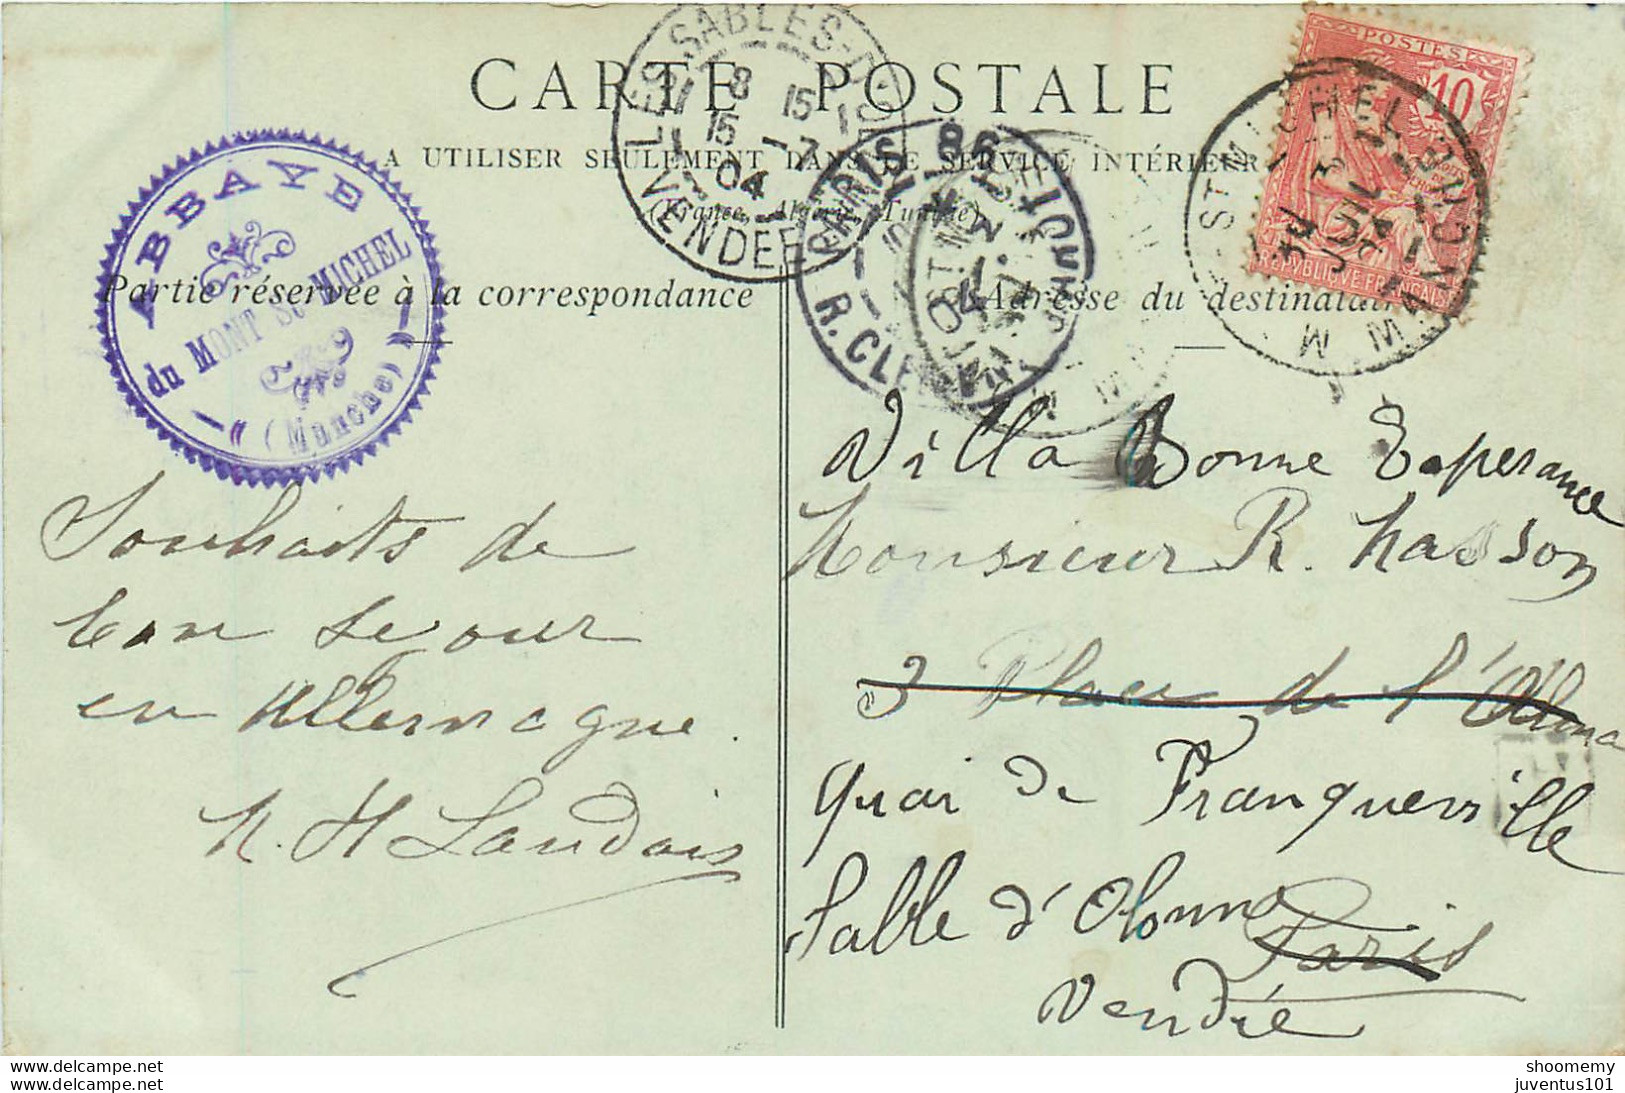 CARTE POSTALE
A UTILISER SEULEMENT DANS LE SERVICE INTÉRIEUR
(France, Algérie, Tunisie)
Partie réservée à la correspondance
Adresse du destinataire
ABBAYE
du MONT St MICHEL
(Manche)
LES SABLES-D'OLONNE
8 15
15 -7
04
VENDEE
PARIS
R. CLER
POSTES
10
REPUBLIQUE FRANÇAISE
ST MICHEL
MANCHE
Souhaits de
bon sejour
en Allemagne.
H Landais
Villa Bonne Esperance
Monsieur R. Masson
3 Place de l'Alma
quai de Franqueville
Sable d'Olonne
Paris
Vendée
https://www.delcampe.net
https://www.delcampe.net
shoomemy
juventus101